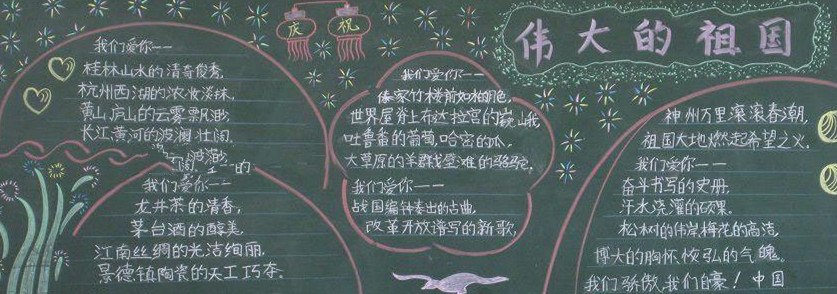 庆祝
伟大的祖国
我们爱你——
桂林山水的清奇俊秀,
杭州西湖的浓妆淡抹,
黄山庐山的云雾飘渺,
长江黄河的波澜壮阔,
的
我们爱你——
龙井茶的清香,
茅台酒的醇美,
江南丝绸的光洁绚丽,
景德镇陶瓷的天工巧夺.
我们爱你——
傣家竹楼前如水的月色,
世界屋脊上布达拉宫的巍峨,
吐鲁番的葡萄,哈密的瓜,
大草原的羊群戈壁滩的骆驼,
我们爱你——
战国编钟奏出的古曲,
改革开放谱写的新歌,
神州万里滚滚春潮,
祖国大地燃起希望之火.
我们爱你——
奋斗书写的史册,
汗水浇灌的硕果,
松树的伟岸梅花的高洁,
博大的胸怀恢弘的气魄.
我们骄傲,我们自豪!中国